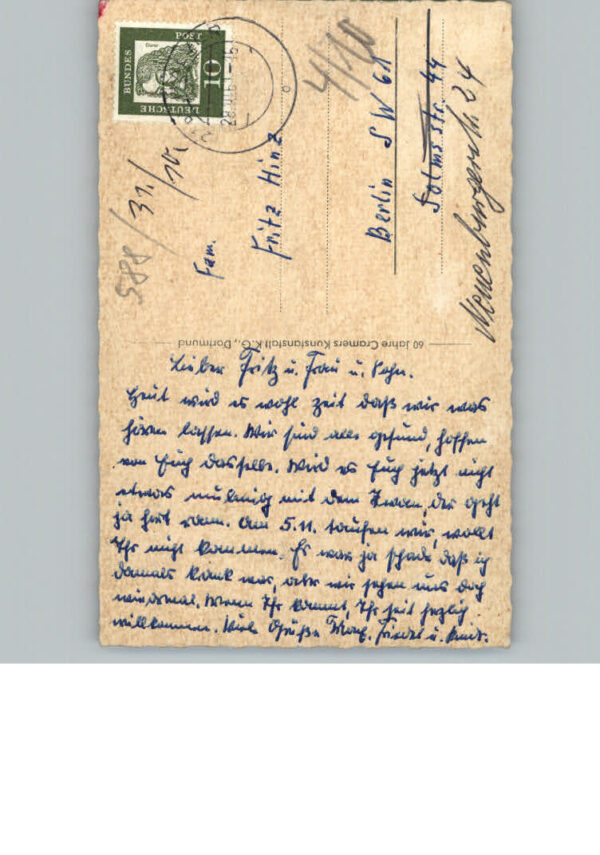 BUNDES
POST
Dürer
10
DEUTSCHE
4/10
588/31./10.
Fam.
Fritz Hinz
Berlin SW 61
Solmsstr. 44
Neuenburgerstr. 24
60 Jahre Cramers Kunstanstalt K.G., Dortmund
Lieber Fritz u. Frau u. Sohn.
Heut wird es wohl Zeit daß wir was
hören lassen. Wir sind alle gesund, hoffen
von Euch dasselbe. Wird es Euch jetzt nicht
etwas mulmig mit dem Iwan, der geht
ja hart rann. Am 5.11. taufen wir, wollt
Ihr nicht kommen. Es war ja schade daß ich
damals krank war, aber wir sehen uns doch
nochmal. Wenn Ihr kommt, Ihr seit herzlich
willkommen. Viele Grüße Friedel u. Kind.